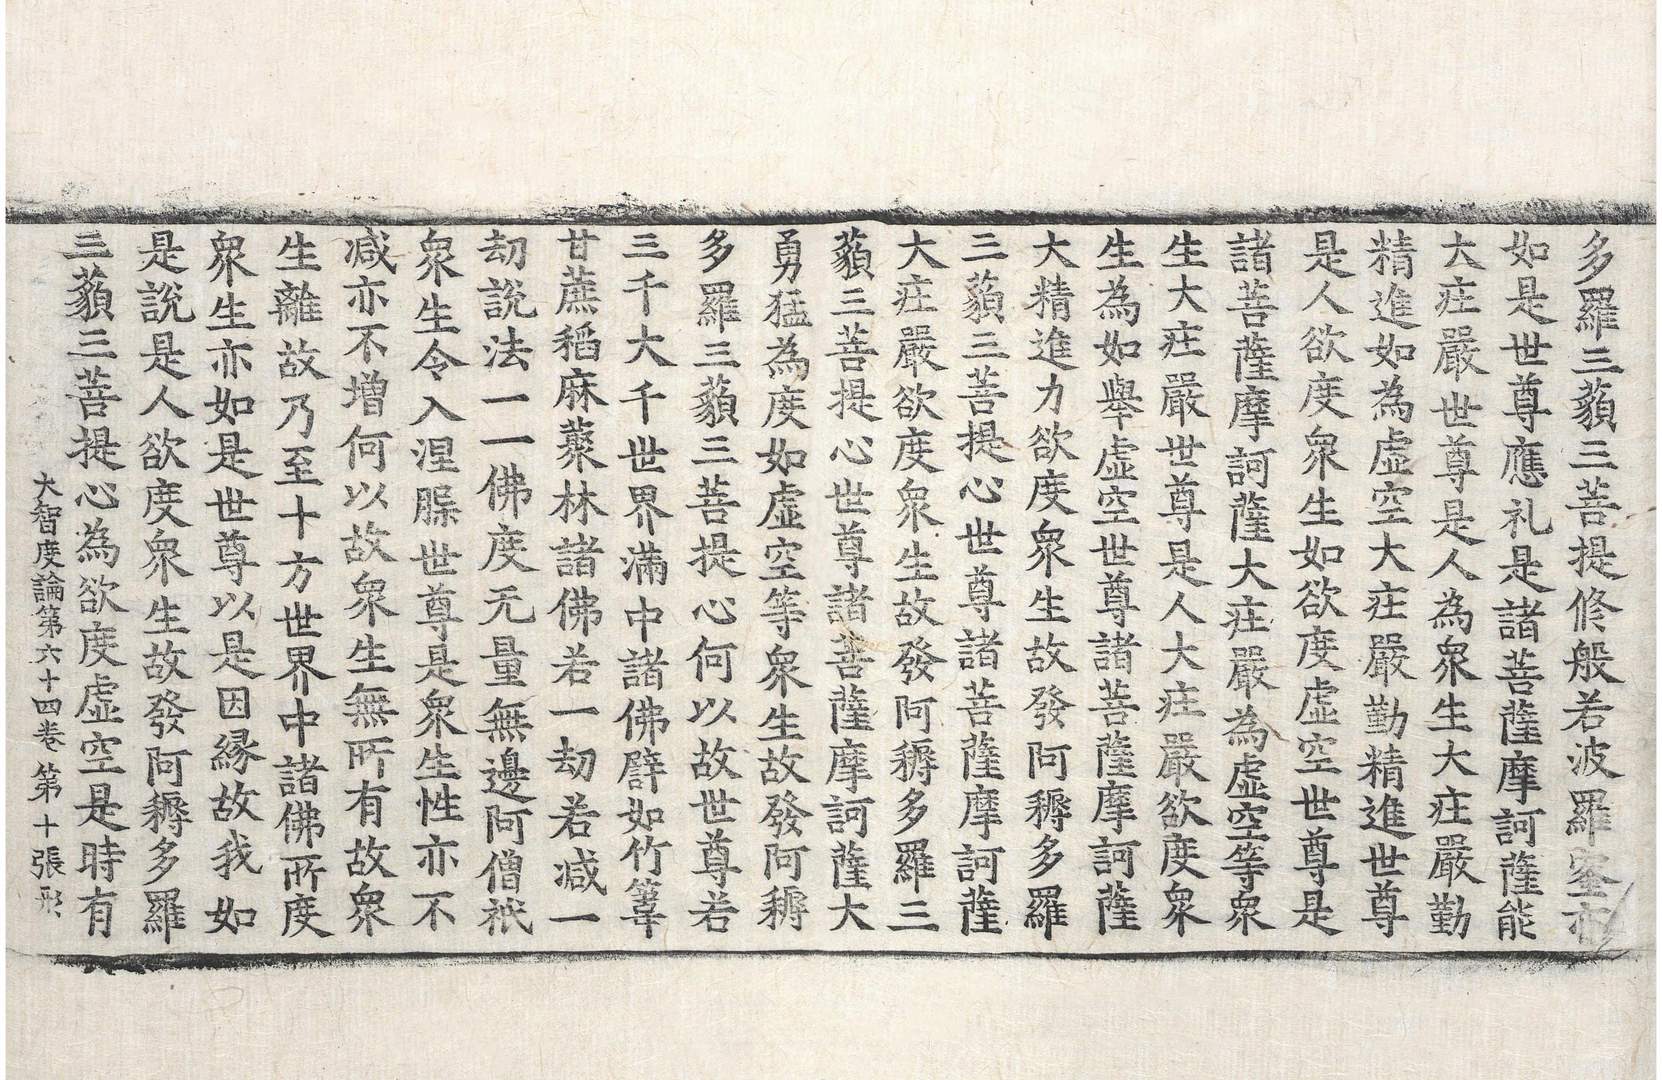 多羅三藐三菩提修般若波羅蜜亦
如是世尊應礼是諸菩薩摩訶薩能
大莊嚴世尊是人為衆生大莊嚴勤
精進如為虛空大莊嚴勤精進世尊
是人欲度衆生如欲度虛空世尊是
諸菩薩摩訶薩大莊嚴為虛空等衆
生大莊嚴世尊是人大莊嚴欲度衆
生為如舉虛空世尊諸菩薩摩訶薩
大精進力欲度衆生故發阿耨多羅
三藐三菩提心世尊諸菩薩摩訶薩
大莊嚴欲度衆生故發阿耨多羅三
藐三菩提心世尊諸菩薩摩訶薩大
勇猛為度如虛空等衆生故發阿耨
多羅三藐三菩提心何以故世尊若
三千大千世界滿中諸佛譬如竹葦
甘蔗稻麻藂林諸佛若一劫若减一
劫說法一一佛度无量無邊阿僧祇
衆生令入涅槃世尊是衆生性亦不
减亦不增何以故衆生無所有故衆
生離故乃至十方世界中諸佛所度
衆生亦如是世尊以是因緣故我如
是說是人欲度衆生故發阿耨多羅
三藐三菩提心為欲度虛空是時有
大智度論第六十四卷 第十張 形